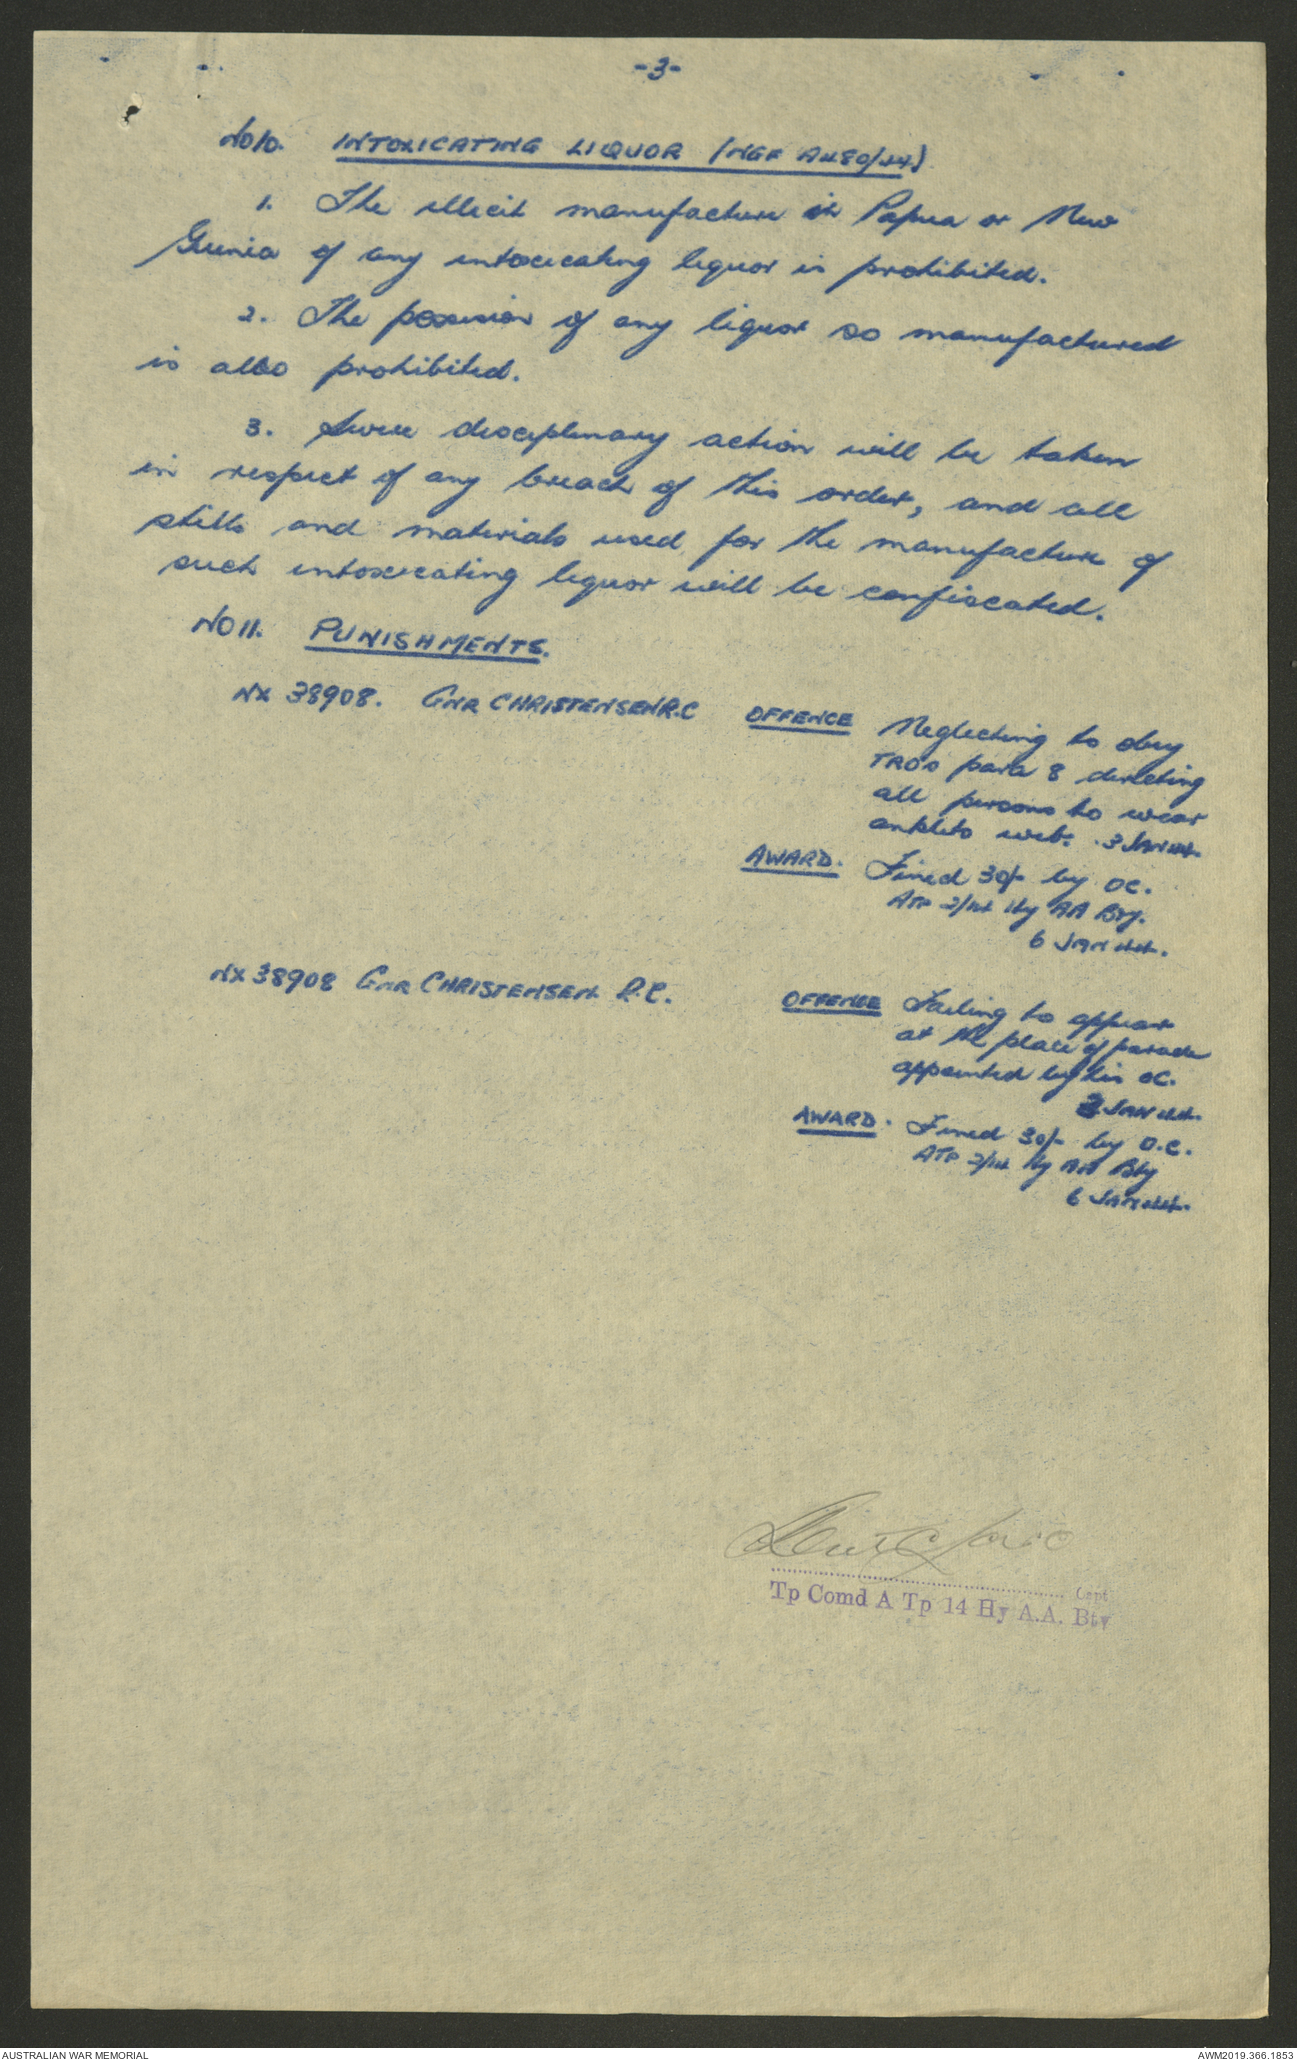 -3-
No 10. INTOXICATING LIQUOR (NGF A480/44)
1. The illicit manufacture in Papua or New
Guinia of any intoxicating liquor is prohibited.
2. The possesion of any liquor so manufactured
is also prohibited.
3. Severe disciplinary action will be taken
in respect of any breach of this order, and all
stills and materials used for the manufacture of
such intoxicating liquor will be confiscated.
NO 11. PUNISHMENTS.
NX 38908. GNR CHRISTENSEN R.C OFFENCE Neglecting to obey
TRO's para 8 directing
all persons to wear
anklets web. 3 JAN 44.
AWARD. Fined 30/- by OC.
ATP 2/14 Hy AA Bty.
6 JAN 44.
NX 38908 GNR CHRISTENSEN R.C. OFFENCE Failing to appear
at the place of parade
appointed by his OC.
3 JAN 44.
AWARD. Fined 30/- by O.C.
ATP 2/14 Hy AA Bty
6 JAN 44.
Capt
Tp Comd A Tp 14 Hy A.A. Bty
AUSTRALIAN WAR MEMORIAL
AWM2019.366.1853